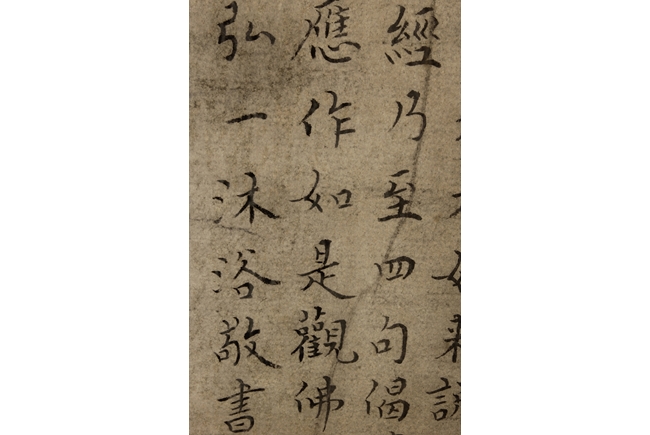 經乃至四句偈
應作如是觀佛
弘一沐浴敬書